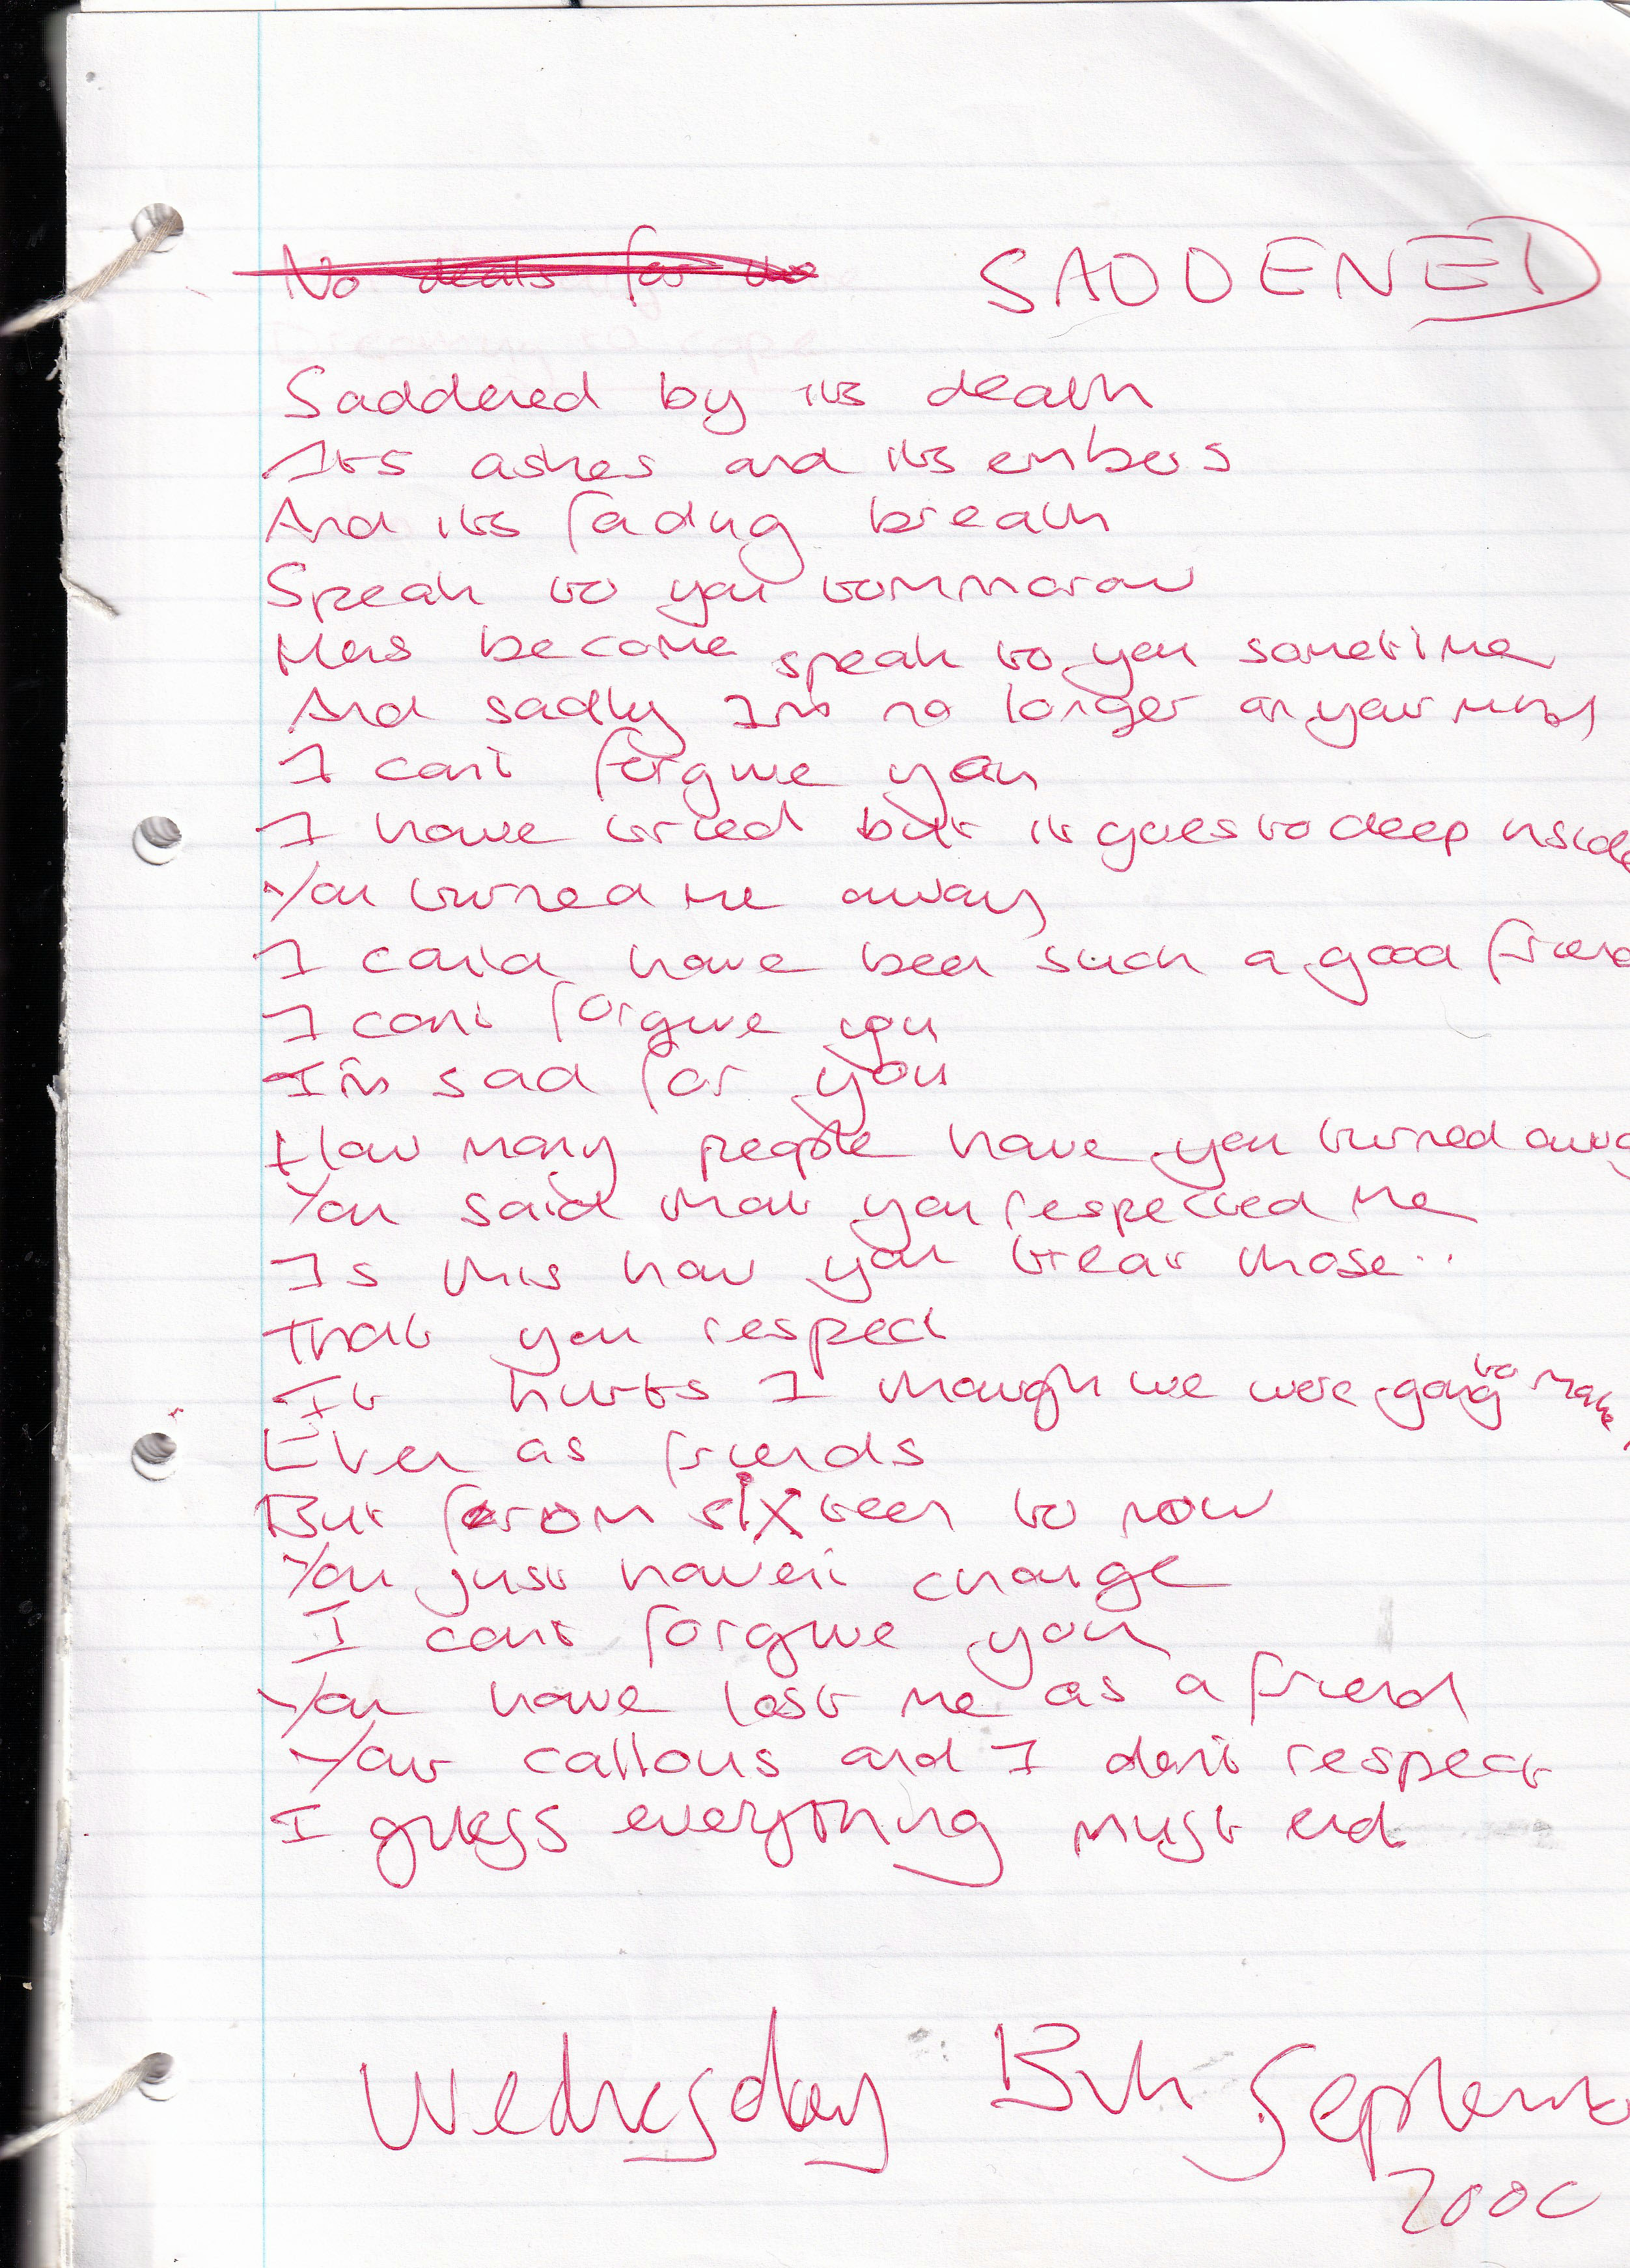 No deals for the SADDENED
Saddened by its death
Its ashes and its embers
And its fading breath
Speak to you tommorow
Has become speak to you sometime
And sadly I'm no longer on your mind
I can't forgive you
I have tried but it goes to deep inside
You turned me away
I could have been such a good friend
I can't forgive you
I'm sad for you
How many people have you turned away
You said that you respected me
Is this how you treat those..
That you respect
It hurts I though we were going to make
Even as friends
But from sixteen to now
You just haven't change
I can't forgive you
You have lost me as a friend
Your callous and I don't respect
I guess everything must end
Wednesday 13th Septemb
2000